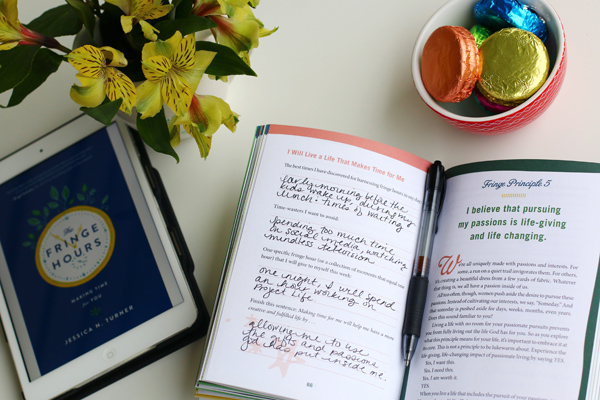 The
FRINGE
HOURS
MAKING TIME
for
YOU
JESSICA N. TURNER
I Will Live a Life That Makes Time for Me
The best times I have discovered for harnessing fringe hours in my day:
Early morning before the
kids wake up, during my
lunch. time of waiting
Time-wasters I want to avoid:
Spending too much time
on social media, watching
mindless television
One specific fringe hour (or a collection of moments that equal one
hour) that I will give to myself this week:
one night, I will spend
an hour working on
Project Life
Finish this sentence: Making time for me will help me have a more
creative and fulfilled life by
allowing me to use
the gifts and passions
God has put inside me.
60
Fringe Principle 5
I believe that pursuing
my passions is life-giving
and life changing.
We're all uniquely made with passions and interests. For
some, a run on a quiet trail invigorates them. For others,
it's creating a beautiful dress from a few yards of fabric. Whatever
that thing is, we all have a passion inside of us.
All too often, women push aside the desire to pursue these
passions. Instead of cultivating our interests, we say, "Someday." And
that someday is pushed aside for days, weeks, months, even years.
Does this sound familiar to you?
Living a life with no room for your passionate pursuits prevents
you from fully living out the life God has for you. So as you explore
what this principle means for your life, it's important to embrace it as
This is not a principle to be lukewarm about. Experience the
life-giving, life-changing impact of passionate living by saying YES.
Yes, I want this.
Yes, I need this.
Yes, I am worth it.
YES.
When you live a life that includes the pursuit of your passions,